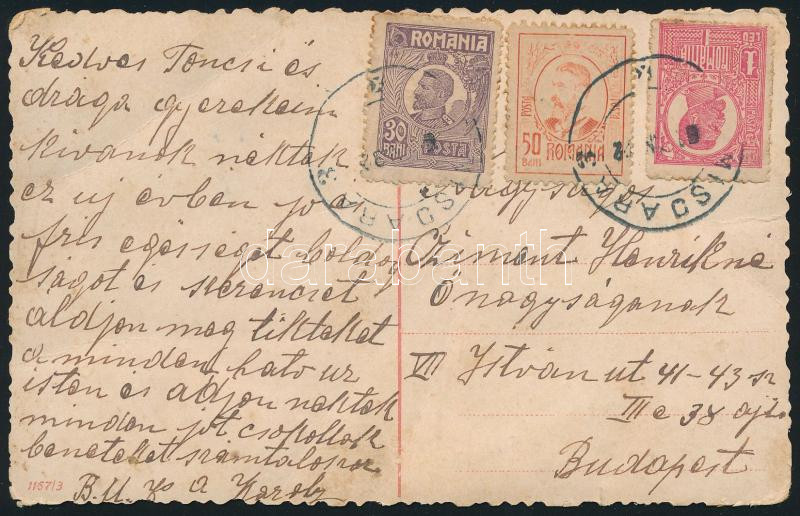 Kedves Toncsi és
draga gyerekeim
kivanok nektek
ez uj évben jo a
fris egesseget boldog
ságot és szerencset
aldjon meg titteket
a minden hato ur
isten es adjon nektek
minden jót csokollak
benetekket számtaloszor
B.U.
a Karoly
1167/3
ROMANIA
30 BANI POSTA
POSTA
50 BANI ROMANIA
1 LEU
Romania
Nagyságos
Cziment Henrikné
Önagyságanak
VII István ut 41-43 sz
III e 38 ajt.
Budapest
darabanth